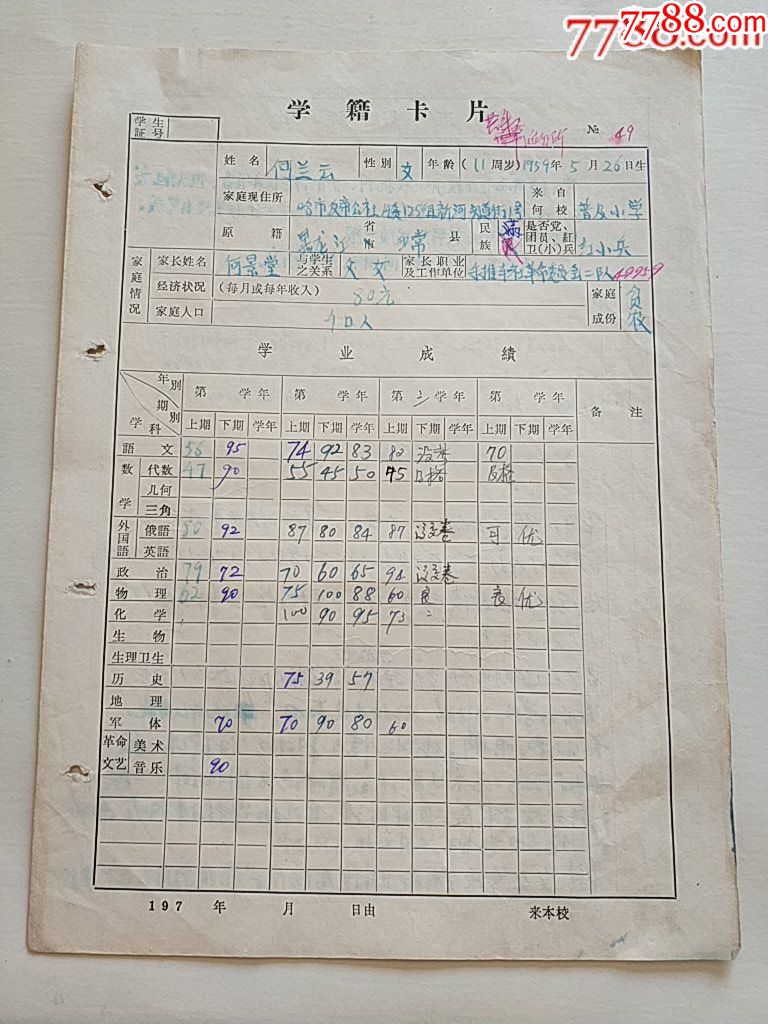 7788.com
7788.com
学籍卡片
学生
证号
№ 49
姓名 何兰云 性别 女 年龄 (11周岁) 1959年5月26日生
家庭现住所 哈市 来自何校 普及小学
原籍 黑龙江省 常县 民族 满 是否党、团员、紅卫(小)兵 红小兵
家庭情况
家长姓名 何景堂 与学生之关系 父女 家长职业及工作单位 49959
经济状况 (每月或每年收入) 80元 家庭成份 贫农
家庭人口 人
学业成績
年別 期別 学科 第 学年 第 学年 第三学年 第 学年 备注
上期 下期 学年 上期 下期 学年 上期 下期 学年 上期 下期 学年
語文 56 95 74 92 83 80 没考 70
数学 代数 47 90 55 45 50 45 及格 及格
几何
三角
外国語 俄語 80 92 87 80 84 87 没交卷 可 优
英語
政治 79 72 70 60 65 94 没交卷
物理 62 90 75 100 88 60 良 良 优
化学 100 90 95 73
生物
生理卫生
历史 75 39 57
地理
军体 70 70 90 80 60
革命文艺 美术
音乐 90
197 年 月 日由 来本校